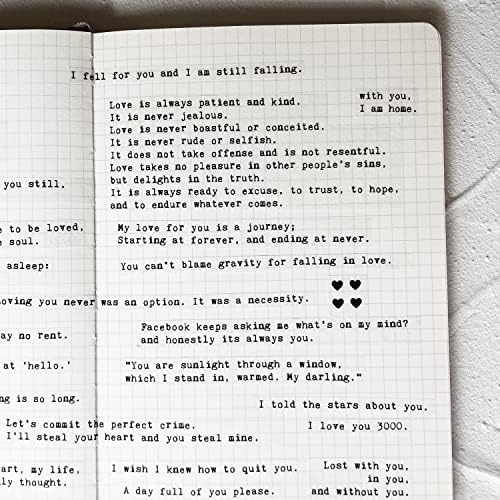 I fell for you and I am still falling.
with you,
I am home.
Love is always patient and kind.
It is never jealous.
Love is never boastful or conceited.
It is never rude or selfish.
It does not take offense and is not resentful.
Love takes no pleasure in other people's sins,
but delights in the truth.
It is always ready to excuse, to trust, to hope,
and to endure whatever comes.
you still,
e to be loved,
e soul.
My love for you is a journey;
Starting at forever, and ending at never.
asleep:
You can't blame gravity for falling in love.
oving you never was an option. It was a necessity.
ay no rent.
Facebook keeps asking me what's on my mind?
and honestly its always you.
at 'hello.'
"You are sunlight through a window,
which I stand in, warmed. My darling."
ng is so long.
I told the stars about you.
Let's commit the perfect crime.
I'll steal your heart and you steal mine.
I love you 3000.
art, my life,
ly thought.
I wish I knew how to quit you.
A day full of you please.
Lost with you,
in you,
and without you